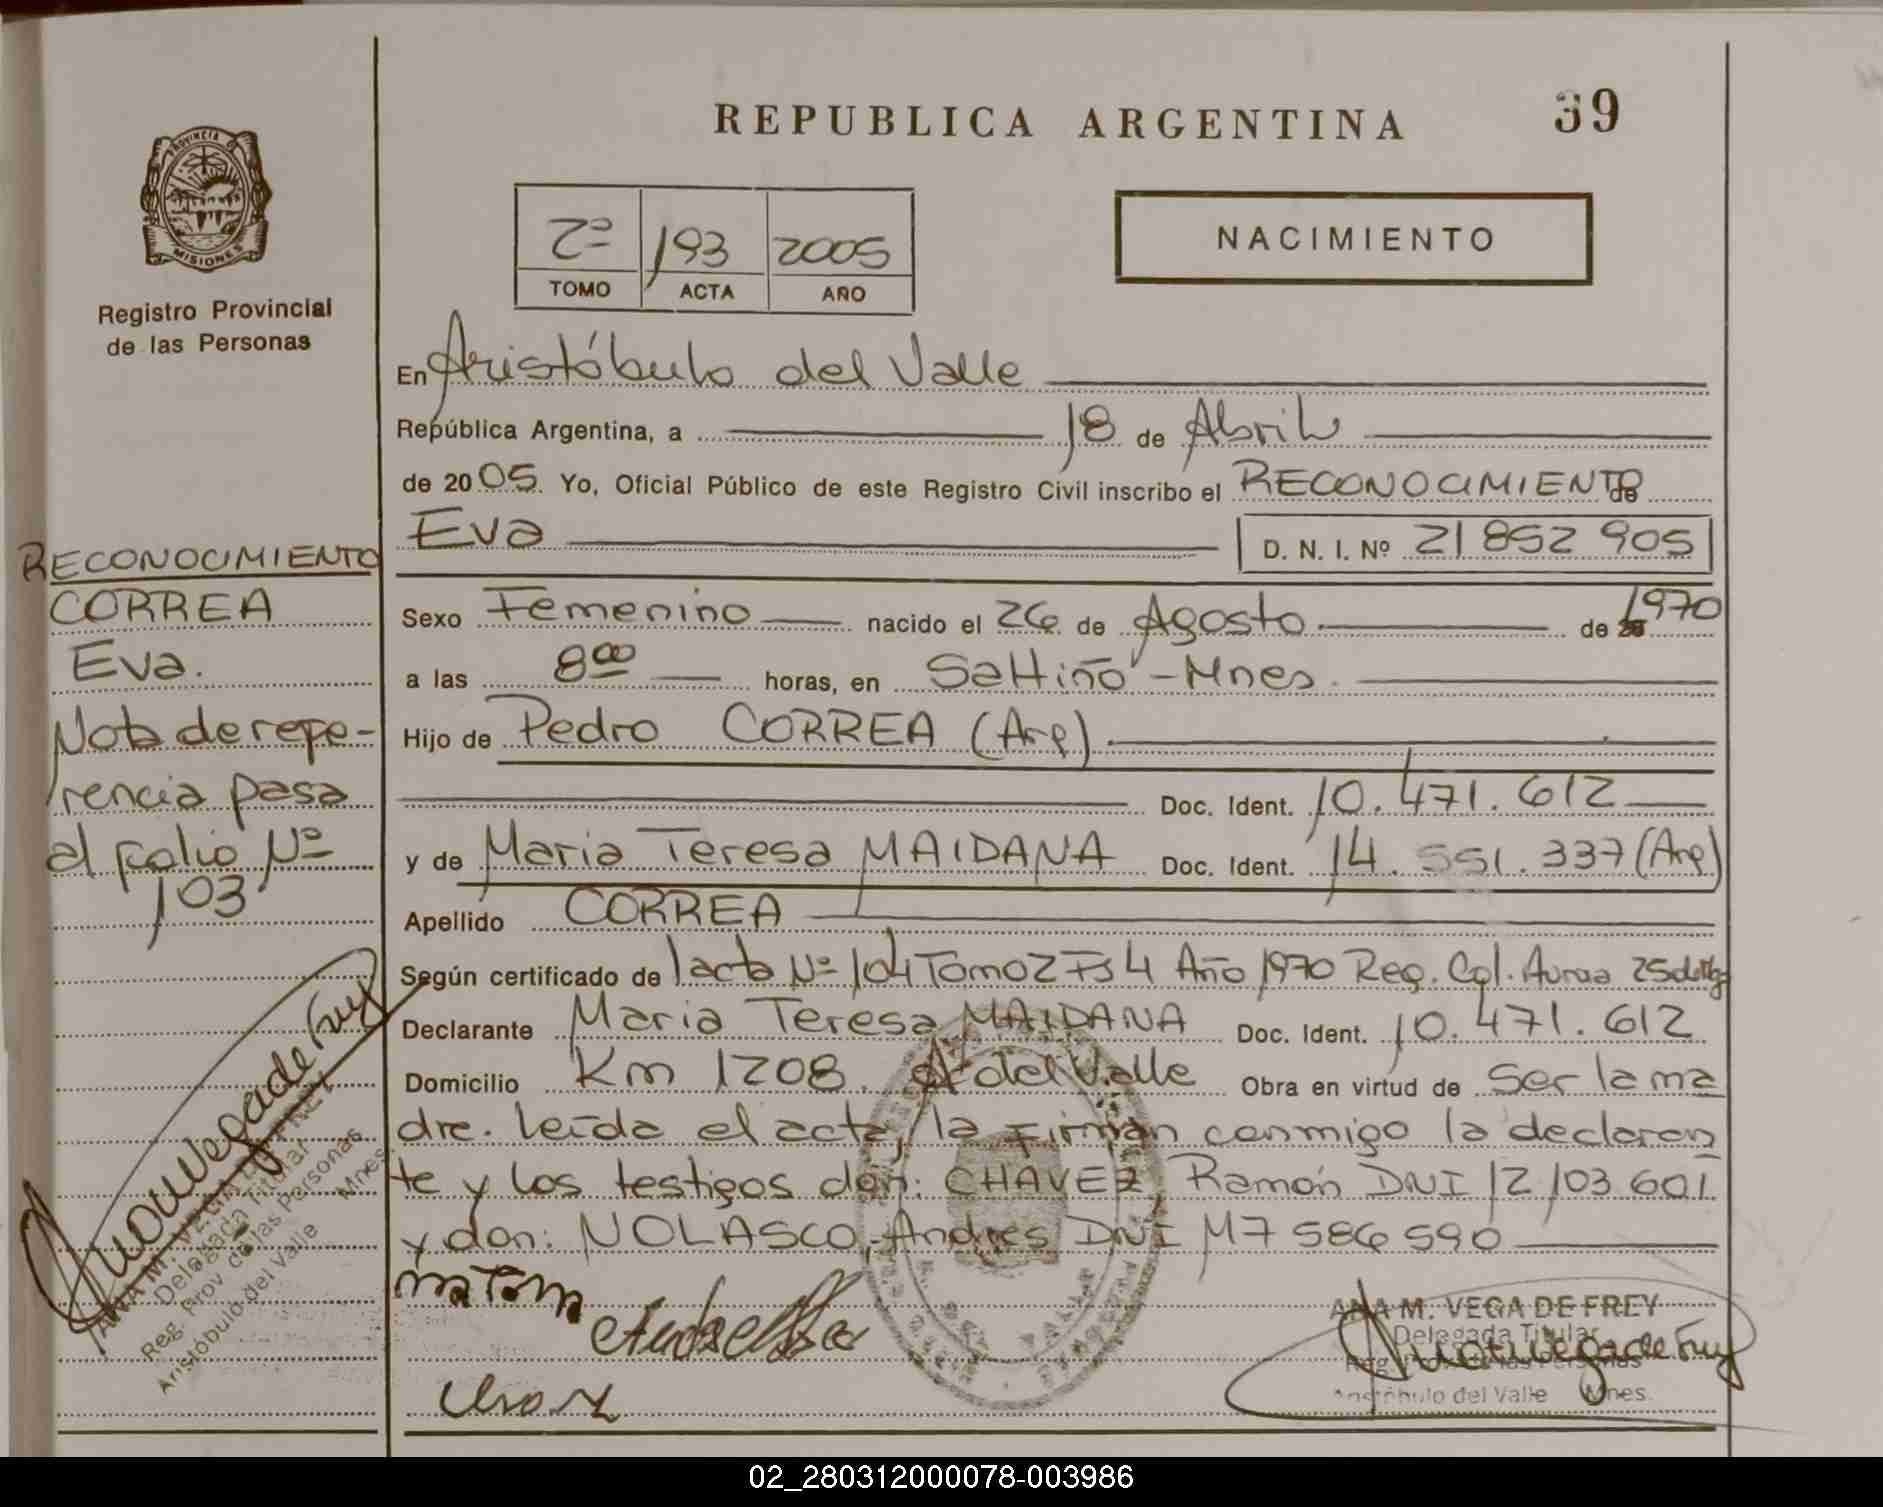 REPUBLICA ARGENTINA
39
PROVINCIA
MISIONES
Registro Provincial
de las Personas
2º 193 2005
TOMO ACTA AÑO
NACIMIENTO
En Aristóbulo del Valle
República Argentina, a 18 de Abril
de 2005. Yo, Oficial Público de este Registro Civil inscribo el RECONOCIMIENTO de
Eva D. N. I. Nº 21 852 905
Sexo Femenino nacido el 26 de Agosto de 1970
a las 8 00 horas, en Saltiño - Mnes.
Hijo de Pedro CORREA (Arg)
Doc. Ident. 10.471.612
y de Maria Teresa MAIDANA Doc. Ident. 14.551.337 (Arg)
Apellido CORREA
Según certificado de 1 acta Nº 104 Tomo 2 Fs 4 Año 1970 Reg. Col. Aurora 25 de May
Declarante Maria Teresa MAIDANA Doc. Ident. 10.471.612
Domicilio Km 1208. A° del Valle Obra en virtud de Ser la ma
dre. Leída el acta, la firman conmigo la declaran
te y los testigos don: CHAVEZ, Ramón DNI 12 103 601
y don: NOLASCO, Andres DNI M7 586 590
ANA M. VEGA DE FREY
Delegada Titular
Reg. Prov. de las Personas
Aristóbulo del Valle Mnes.
RECONOCIMIENTO
CORREA
Eva.
Nota de refe-
rencia pasa
al folio Nº
103
ANA M. VEGA DE FREY
Delegada Titular
Reg. Prov. de las Personas
Aristóbulo del Valle Mnes.
02_280312000078-003986